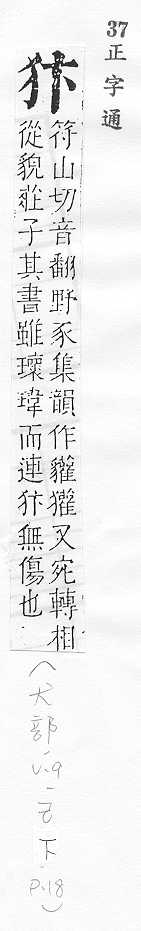 37
正字通
犿
符山切音翻野豕集韻作䝔獾又宛轉相
從貌莊子其書雖瓌瑋而連犿無傷也
(犬部、
V.9
-
下
P.18)